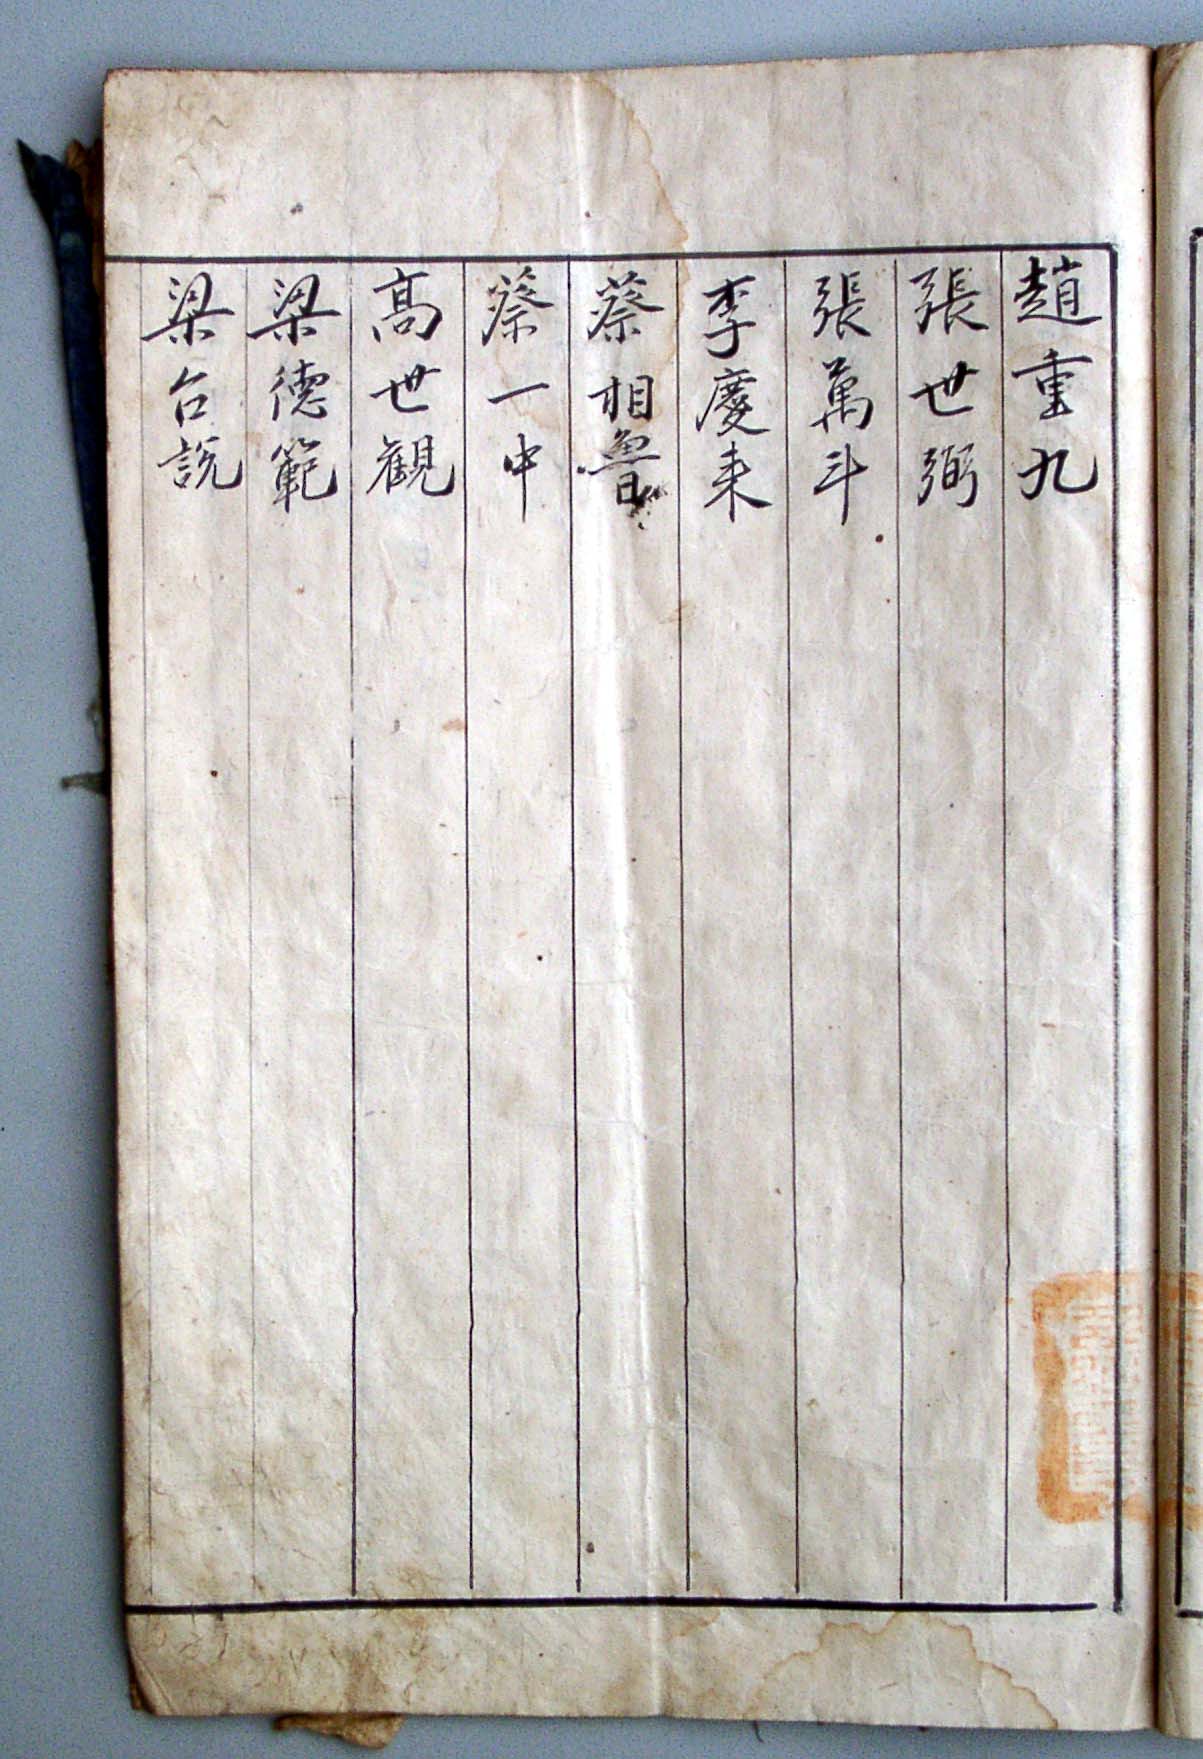 趙重九
張世弼
張萬斗
李慶来
蔡相魯
蔡一中
髙世観
梁德範
梁台說